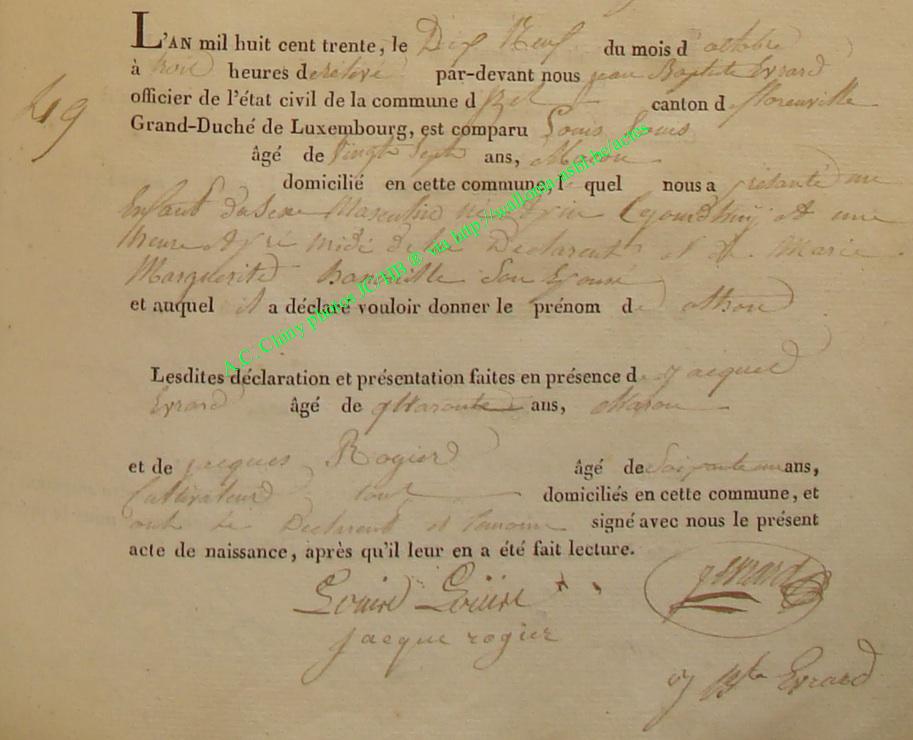 L'AN mil huit cent trente, le Dix Neuf du mois d'octobre
à trois heures de relevé par-devant nous jean Baptiste Evrard
officier de l'état civil de la commune d'izel canton de florenville
Grand-Duché de Luxembourg, est comparu Louis Louis
49
âgé de vingt sept ans, Macon
domicilié en cette commune, lequel nous a présanté un
Enfant du Sexe Masculin né d'hui et une
heure midi de lui Declarent et de Marie
Marguerite son Epouse
et auquel il a déclaré vouloir donner le prénom de
Lesdites déclaration et présentation faites en présence de jacques
Evrard âgé de quaronte ans, Macon
et de jacques Rogier âgé de soixante un ans,
Cultivateur tout domiciliés en cette commune, et
ont le Declarent et temoins signé avec nous le présent
acte de naissance, après qu'il leur en a été fait lecture.
A.C. Chiny photos JCMJB ® via http://wallonia-asbl.be/actes
j evrard
jacque rogier
j Bte Evrard